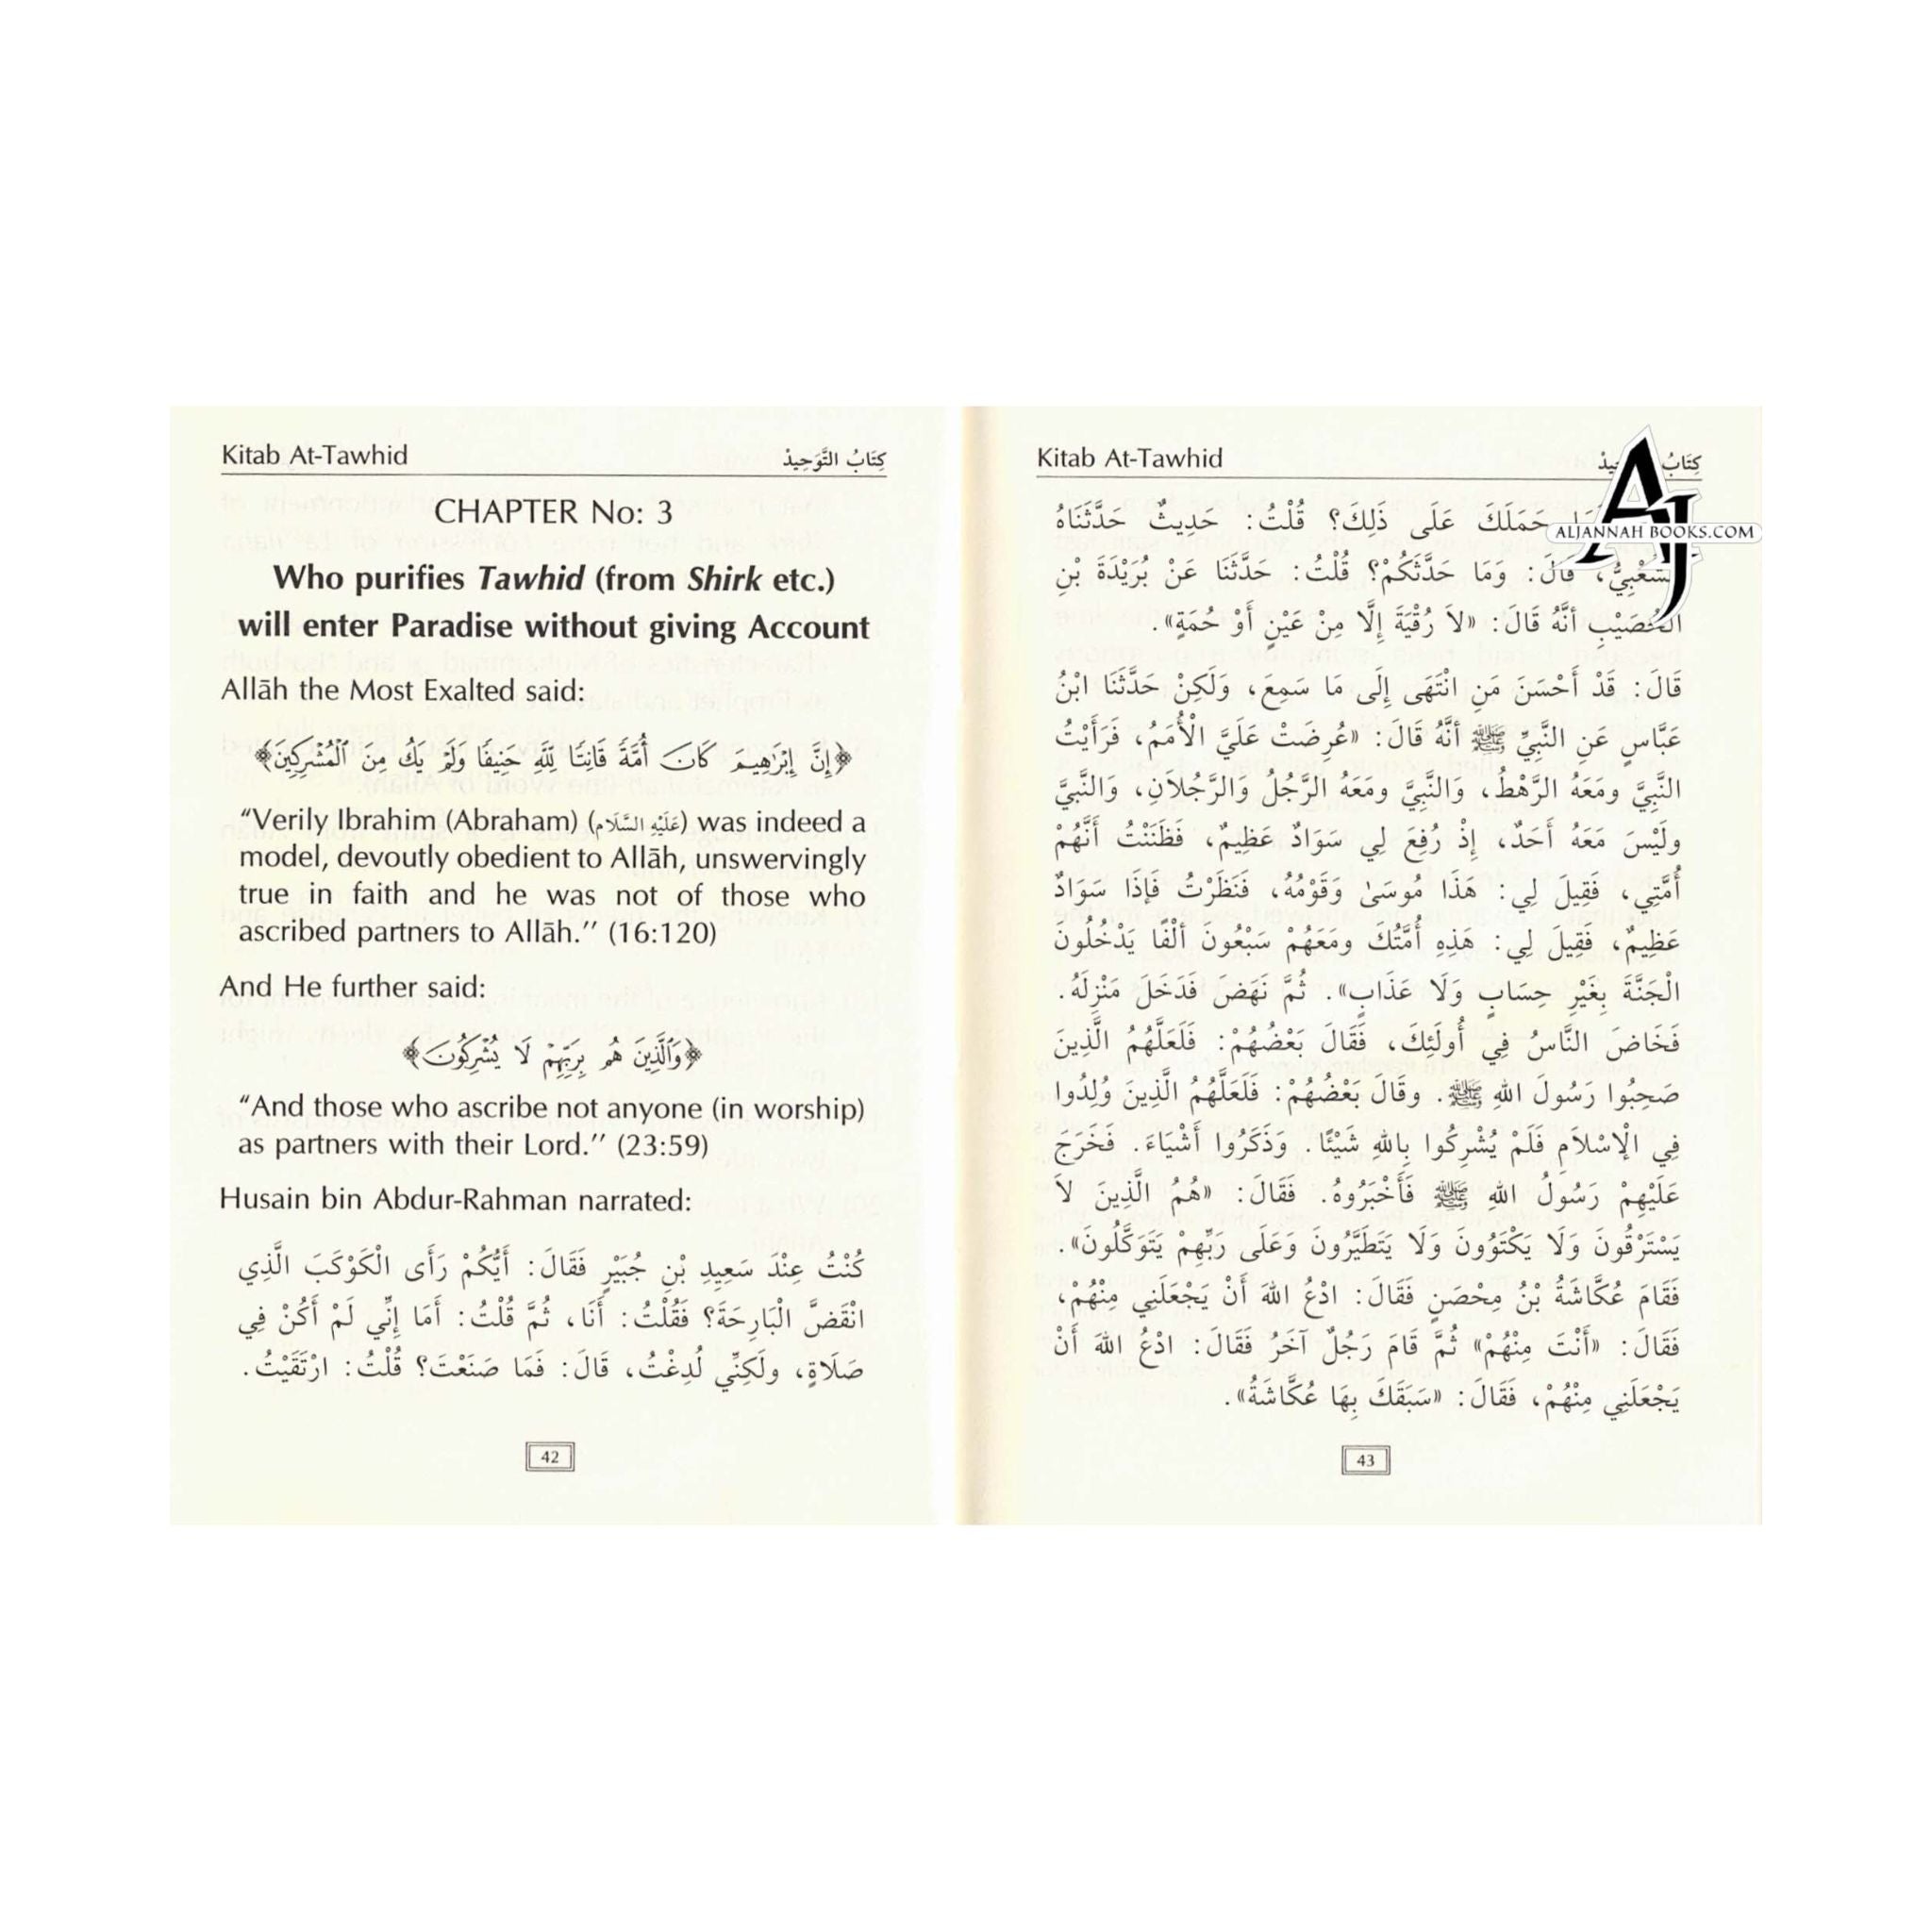 Kitab At-Tawhid كِتَابُ التَّوَحِيدْ
CHAPTER No: 3
Who purifies Tawhid (from Shirk etc.)
will enter Paradise without giving Account
Allāh the Most Exalted said:
﴿إِنَّ إِبْرَٰهِيمَ كَانَ أُمَّةً قَانِتًا لِلَّهِ حَنِيفًا وَلَمْ يَكُ مِنَ ٱلْمُشْرِكِينَ﴾
“Verily Ibrahim (Abraham) (عَلَيْهِ السَّلَام) was indeed a
model, devoutly obedient to Allāh, unswervingly
true in faith and he was not of those who
ascribed partners to Allāh.” (16:120)
And He further said:
﴿وَٱلَّذِينَ هُم بِرَبِّهِمْ لَا يُشْرِكُونَ﴾
“And those who ascribe not anyone (in worship)
as partners with their Lord.” (23:59)
Husain bin Abdur-Rahman narrated:
كُنْتُ عِنْدَ سَعِيدِ بْنِ جُبَيْرٍ فَقَالَ: أَيُّكُمْ رَأَى الْكَوْكَبَ الَّذِي
انْقَضَّ الْبَارِحَةَ؟ فَقُلْتُ: أَنَا، ثُمَّ قُلْتُ: أَمَا إِنِّي لَمْ أَكُنْ فِي
صَلَاةٍ، ولَكِنِّي لُدِغْتُ، قَالَ: فَمَا صَنَعْتَ؟ قُلْتُ: ارْتَقَيْتُ.
42
Kitab At-Tawhid كِتَابُ
AJ
ALJANNAH BOOKS.COM
حَمَلَكَ عَلَى ذَلِكَ؟ قُلْتُ: حَدِيثٌ حَدَّثَنَاهُ
الشَّعْبِيُّ، قَالَ: وَمَا حَدَّثَكُمْ؟ قُلْتُ: حَدَّثَنَا عَنْ بُرَيْدَةَ بْنِ
الْحُصَيْبِ أنَّهُ قَالَ: «لاَ رُقْيَةَ إِلَّا مِنْ عَيْنٍ أَوْ حُمَةٍ».
قَالَ: قَدْ أَحْسَنَ مَنِ انْتَهَى إِلَى مَا سَمِعَ، وَلَكِنْ حَدَّثَنَا ابْنُ
عَبَّاسٍ عَنِ النَّبِيِّ ﷺ أنَّهُ قَالَ: «عُرِضَتْ عَلَيَّ الْأُمَمُ، فَرَأَيْتُ
النَّبِيَّ ومَعَهُ الرَّهْطُ، وَالنَّبِيَّ ومَعَهُ الرَّجُلُ وَالرَّجُلاَنِ، وَالنَّبِيَّ
ولَيْسَ مَعَهُ أَحَدٌ، إِذْ رُفِعَ لِي سَوَادٌ عَظِيمٌ، فَظَنَنْتُ أَنَّهُمْ
أُمَّتِي، فَقِيلَ لِي: هَذَا مُوسَىٰ وَقَوْمُهُ، فَنَظَرْتُ فَإِذَا سَوَادٌ
عَظِيمٌ، فَقِيلَ لِي: هَذِهِ أُمَّتُكَ ومَعَهُمْ سَبْعُونَ ألْفًا يَدْخُلُونَ
الْجَنَّةَ بِغَيْرِ حِسَابٍ وَلَا عَذَابٍ». ثُمَّ نَهَضَ فَدَخَلَ مَنْزِلَهُ.
فَخَاضَ النَّاسُ فِي أُولَئِكَ، فَقَالَ بَعْضُهُمْ: فَلَعَلَّهُمُ الَّذِينَ
صَحِبُوا رَسُولَ اللهِ ﷺ. وقَالَ بَعْضُهُمْ: فَلَعَلَّهُمُ الَّذِينَ وُلِدُوا
فِي الْإِسْلاَمِ فَلَمْ يُشْرِكُوا بِاللهِ شَيْئًا. وَذَكَرُوا أَشْيَاءَ. فَخَرَجَ
عَلَيْهِمْ رَسُولُ اللهِ ﷺ فَأَخْبَرُوهُ. فَقَالَ: «هُمُ الَّذِينَ لاَ
يَسْتَرْقُونَ وَلَا يَكْتَوُونَ وَلَا يَتَطَيَّرُونَ وَعَلَى رَبِّهِمْ يَتَوَكَّلُونَ».
فَقَامَ عُكَّاشَةُ بْنُ مِحْصَنٍ فَقَالَ: ادْعُ اللهَ أَنْ يَجْعَلَنِي مِنْهُمْ،
فَقَالَ: «أَنْتَ مِنْهُمْ» ثُمَّ قَامَ رَجُلٌ آخَرُ فَقَالَ: ادْعُ اللهَ أَنْ
يَجْعَلَنِي مِنْهُمْ، فَقَالَ: «سَبَقَكَ بِهَا عُكَّاشَةُ».
43